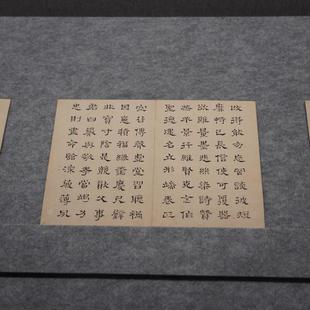 改得能勿忘罔談彼短
靡恃己長信使可覆器
欲難量墨悲絲染詩讚
羔羊景行維賢克念作
聖德建名立形端表正
空谷傳聲虛堂習聽禍
因惡積福緣善慶尺璧
非寶寸陰是競資父事
君曰嚴與敬孝當竭力
忠則盡命臨深履薄夙